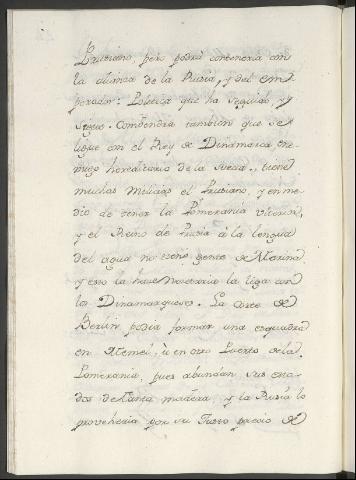 Prusiano, pero podrá contenerla con
la alianza de la Rusia, y del Em-
perador: Politica que ha seguido, y
sigue. Combendria tambien que se
ligue con el Rey de Dinamarca ene-
migo hereditario de la Suecia, tiene
muchas Milicias el Prusiano, y en me-
dio de tener la Pomerania Viterior,
y el Reino de Prusia á la lengua
del agua no tiene gente de Marina
y esto la hace Necesaria la liga con
los Dinamarqueses. La Corte de
Berlin podia formar una esquadra
en Memel, ù en otro Puerto de la
Pomerania, pues abundan sus
de tanta madera, y la Rusia lo
proveheria por su Justo precio de